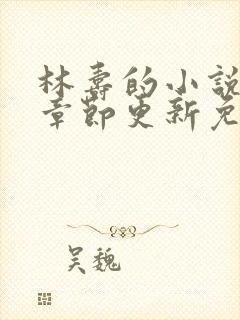 林壽的小說
章節更新免
吴魏